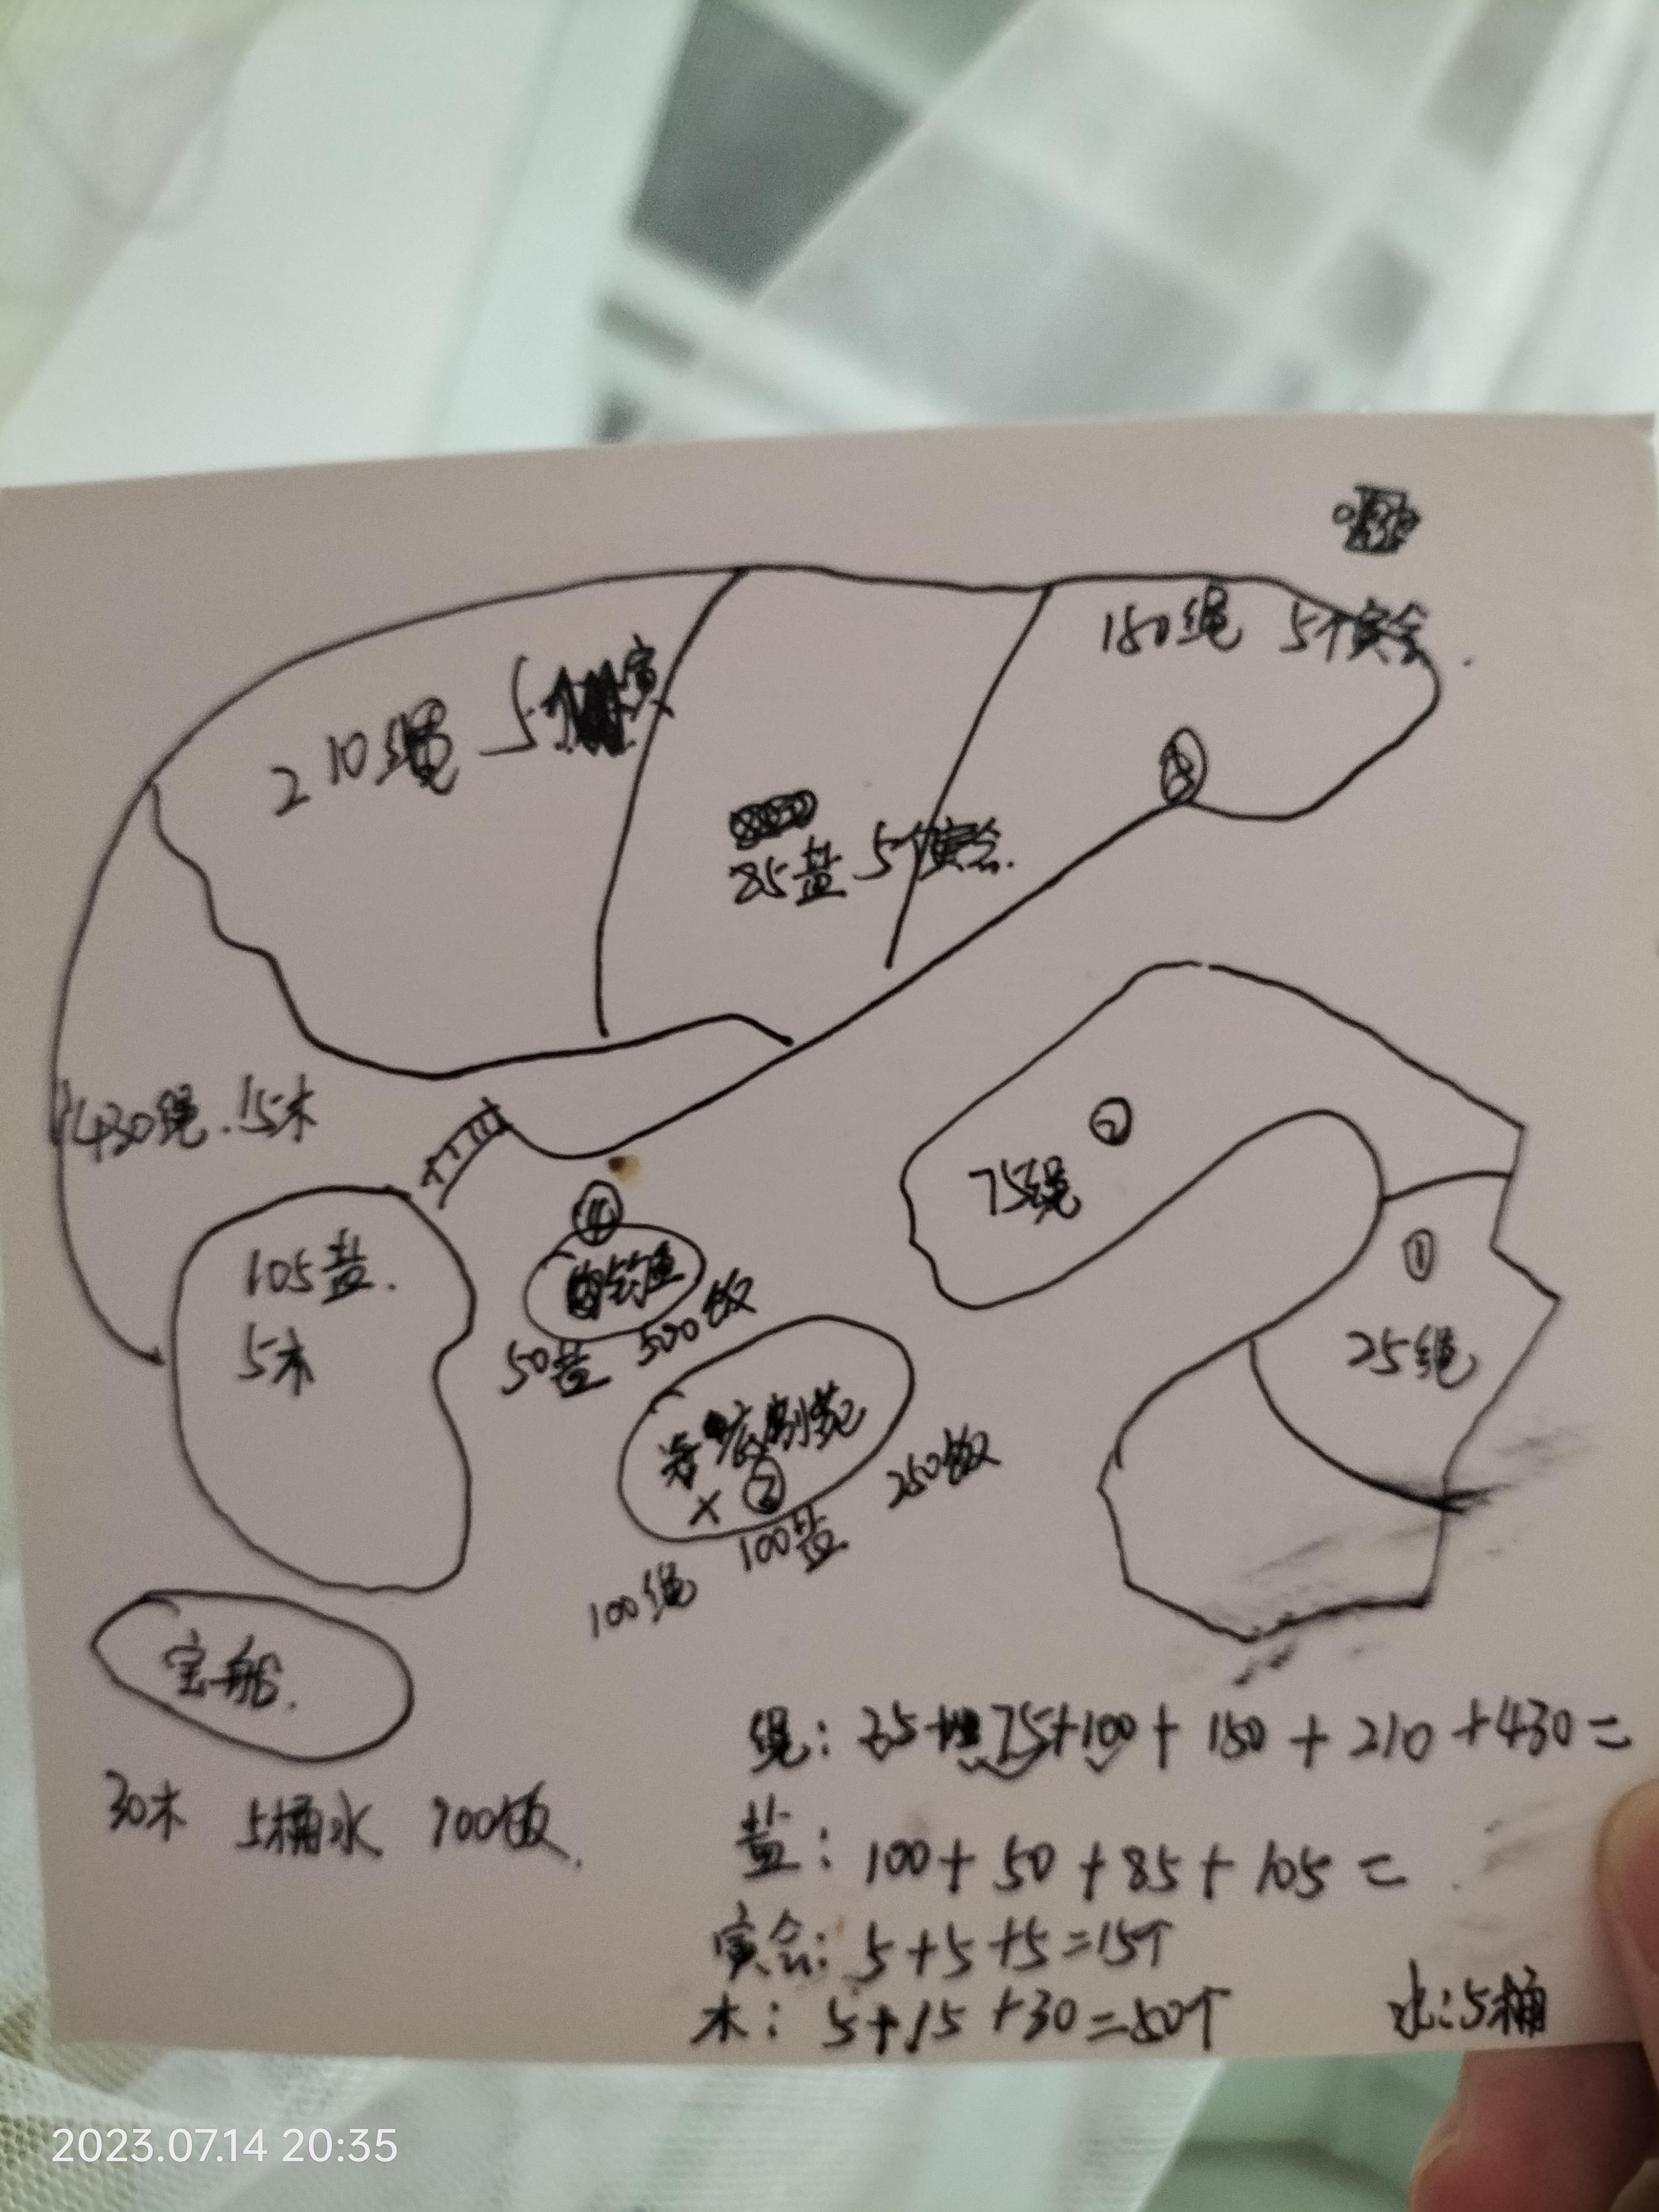 150绳 5个寅会.
210绳 5个寅
85盐 5个寅会.
②
75绳
430绳.15木
①
105盐.
5木
④
钓鱼
50盐 500饭
25绳
别苑
250饭
100盐
100绳
宝船.
30木 5桶水 700饭.
绳: 25+75+100+150+210+430=
盐: 100+50+85+105=
寅会: 5+5+5=15个
木: 5+15+30=50个
水:5桶
2023.07.14 20:35